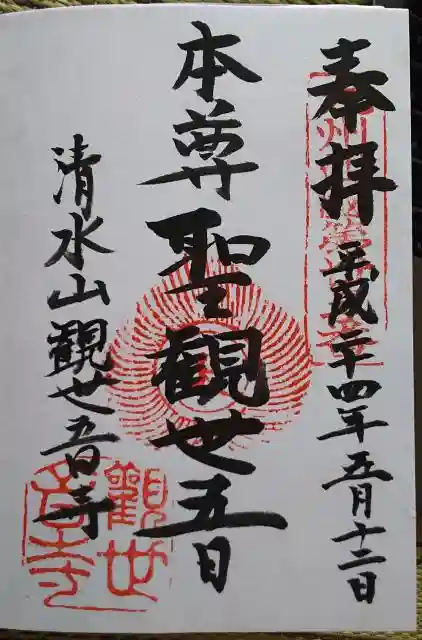 奉拝
平成二十四年五月十二日
本尊聖観世音
清水山観世音寺
觀世音寺